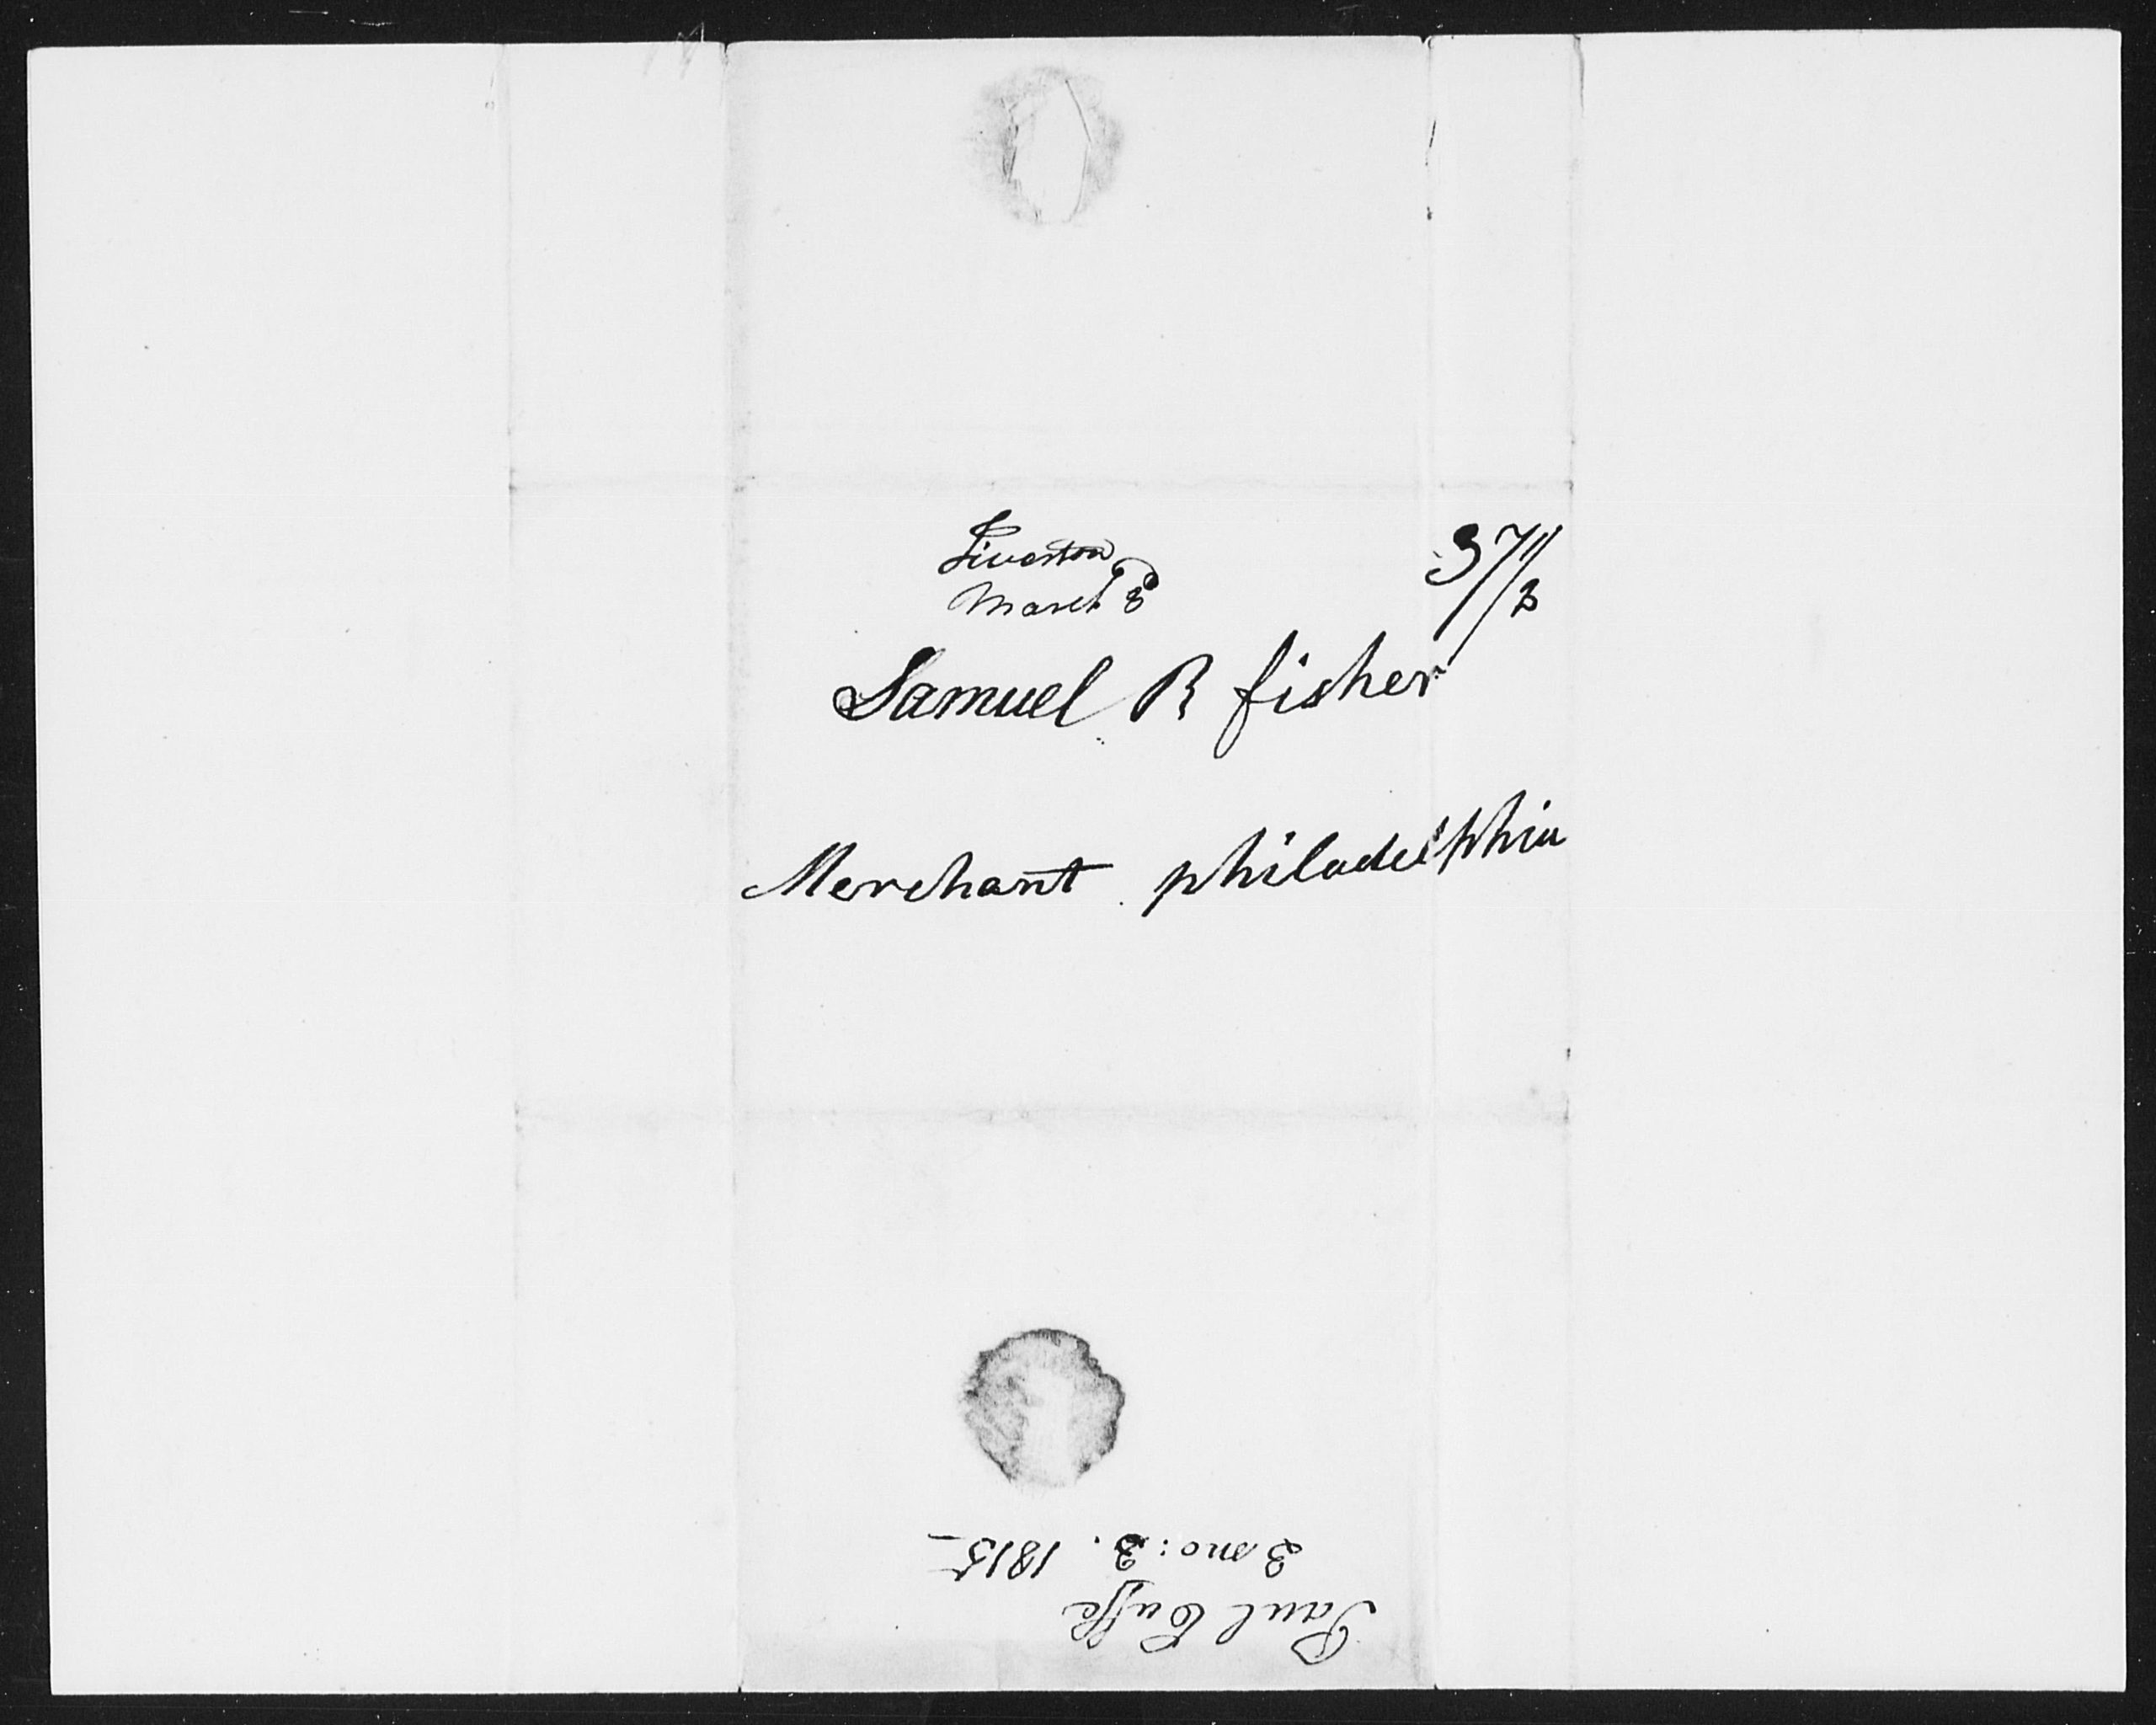 Tiverton
March 8
37 1/2
Samuel R fisher
Merchant philadelphia
Paul Cuffe
3 mo: 3. 1815